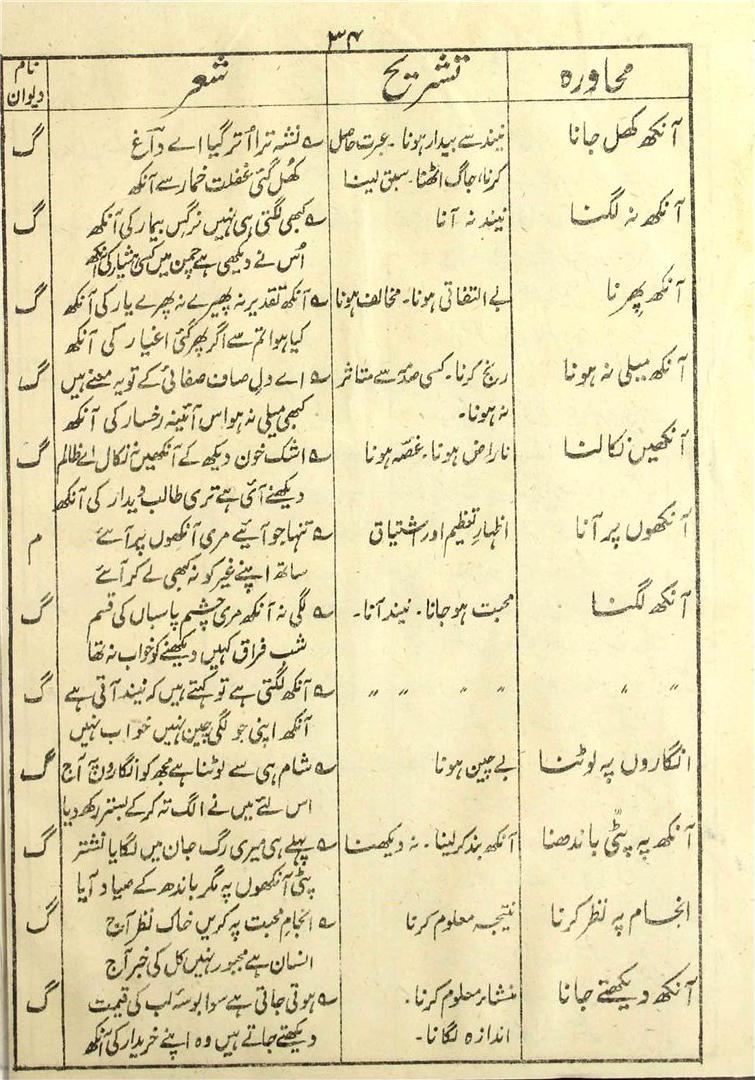 ۳۴
محاورہ تشریح شعر نام دیوان
آنکھ کھل جانا نیند سے بیدار ہونا ۔ عبرت حاصل ؎ نشہ ترا اُتر گیا اے داغ گ
کرنا، جاگ اٹھنا۔ سبق لینا کھُل گئی غفلت خمار سے آنکھ
آنکھ نہ لگنا نیند نہ آنا ؎ کبھی لگتی ہی نہیں نرگس بیمار کی آنکھ گ
اُس نے دیکھی ہے چمن میں کسی ہشیار کی آنکھ
آنکھ پھرنا بے التفاتی ہونا۔ مخالف ہونا ؎ آنکھ تقدیر نہ پھیرے نہ پھرے یار کی آنکھ گ
کیا ہوا تم سے اگر پھر گئی اغیار کی آنکھ
آنکھ میلی نہ ہونا رنج کرنا۔ کسی صدمہ سے متاثر ؎ اے دلِ صاف صفائی کے تو یہ معنے ہیں گ
نہ ہونا۔ کبھی میلی نہ ہو اس آئینہ رخسار کی آنکھ
آنکھیں نکالنا ناراض ہونا۔ غصّہ ہونا ؎ اشک خون دیکھ کے آنکھیں نہ نکال اے ظالم گ
دیکھنے آئی ہے تری طالب دیدار کی آنکھ
آنکھوں پر آنا اظہارِ تعظیم اور اشتیاق ؎ تنہا جو آیئے مری آنکھوں پر آیئے م
ساتھ اپنے غیر کو نہ کبھی لے کر آیئے
آنکھ لگنا محبت ہو جانا۔ نیند آنا۔ ؎ لگی نہ آنکھ مری چشم پاسباں کی قسم گ
شبِ فراق کہیں دیکھنے کو خواب نہ تھا
〃 〃 〃 〃 〃 〃 ؎ آنکھ لگتی ہے تو کہتے ہیں کہ نیند آتی ہے گ
آنکھ اپنی جو لگی چین نہیں خواب نہیں
انگاروں پہ لوٹنا بے چین ہونا ؎ شام ہی سے لوٹنا ہے مجھ کو انگاروں پہ آج گ
اس لئے میں نے الگ تہ کر کے بستر رکھ دیا
آنکھ پہ پٹّی باندھنا آنکھ بند کر لینا۔ نہ دیکھنا ؎ پہلے ہی میری رگ جان میں لگایا نشتر گ
پٹی آنکھوں پہ مگر باندھ کے صیاد آیا
انجام پہ نظر کرنا نتیجہ معلوم کرنا ؎ انجامِ محبت پہ کریں خاک نظر آج گ
انسان ہے مجبور نہیں کل کی خبر آج
آنکھ دیکھتے جانا منشاء معلوم کرنا۔ ؎ ہوتی جاتی ہے سوا بوسۂ لب کی قیمت گ
اندازہ لگانا۔ دیکھتے جاتے ہیں وہ اپنے خریدار کی آنکھ